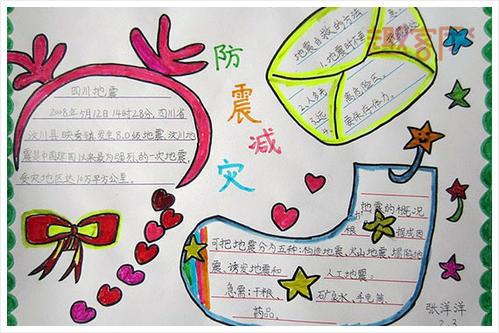 四川地震
2008年5月12日14时28分,四川省
汶川县映秀镇发生8.0级地震,汶川地
震是中国建国以来最为强烈的一次地震,
受灾地区达10万平方公里。
防
震
减
灾
地震自救的方法
1.地震时不要
要保存体力。
地震的概况
可把地震分为五种:构造地震、火山地震、
震、诱发地震和人工地震。
急需:干粮、矿泉水、手电筒、
药品。
张洋洋
2.3